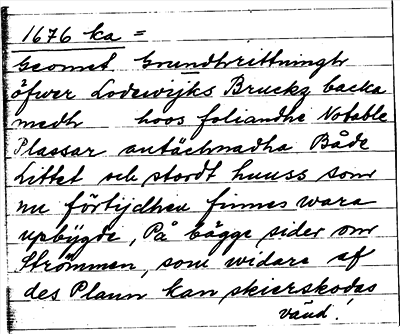 1676 ka =
Geomet Grundtrittningh
öfwer Lodewijks Brucks backa
medh hoos foliandhe Notable
Plassar antächnadha Både
Littet och stordt huuss som
nu förtijdhen finnes wara
upbÿgde, På bägge sider om
Strömmen, som widare af
des Plann kan skierskodas
vänd!